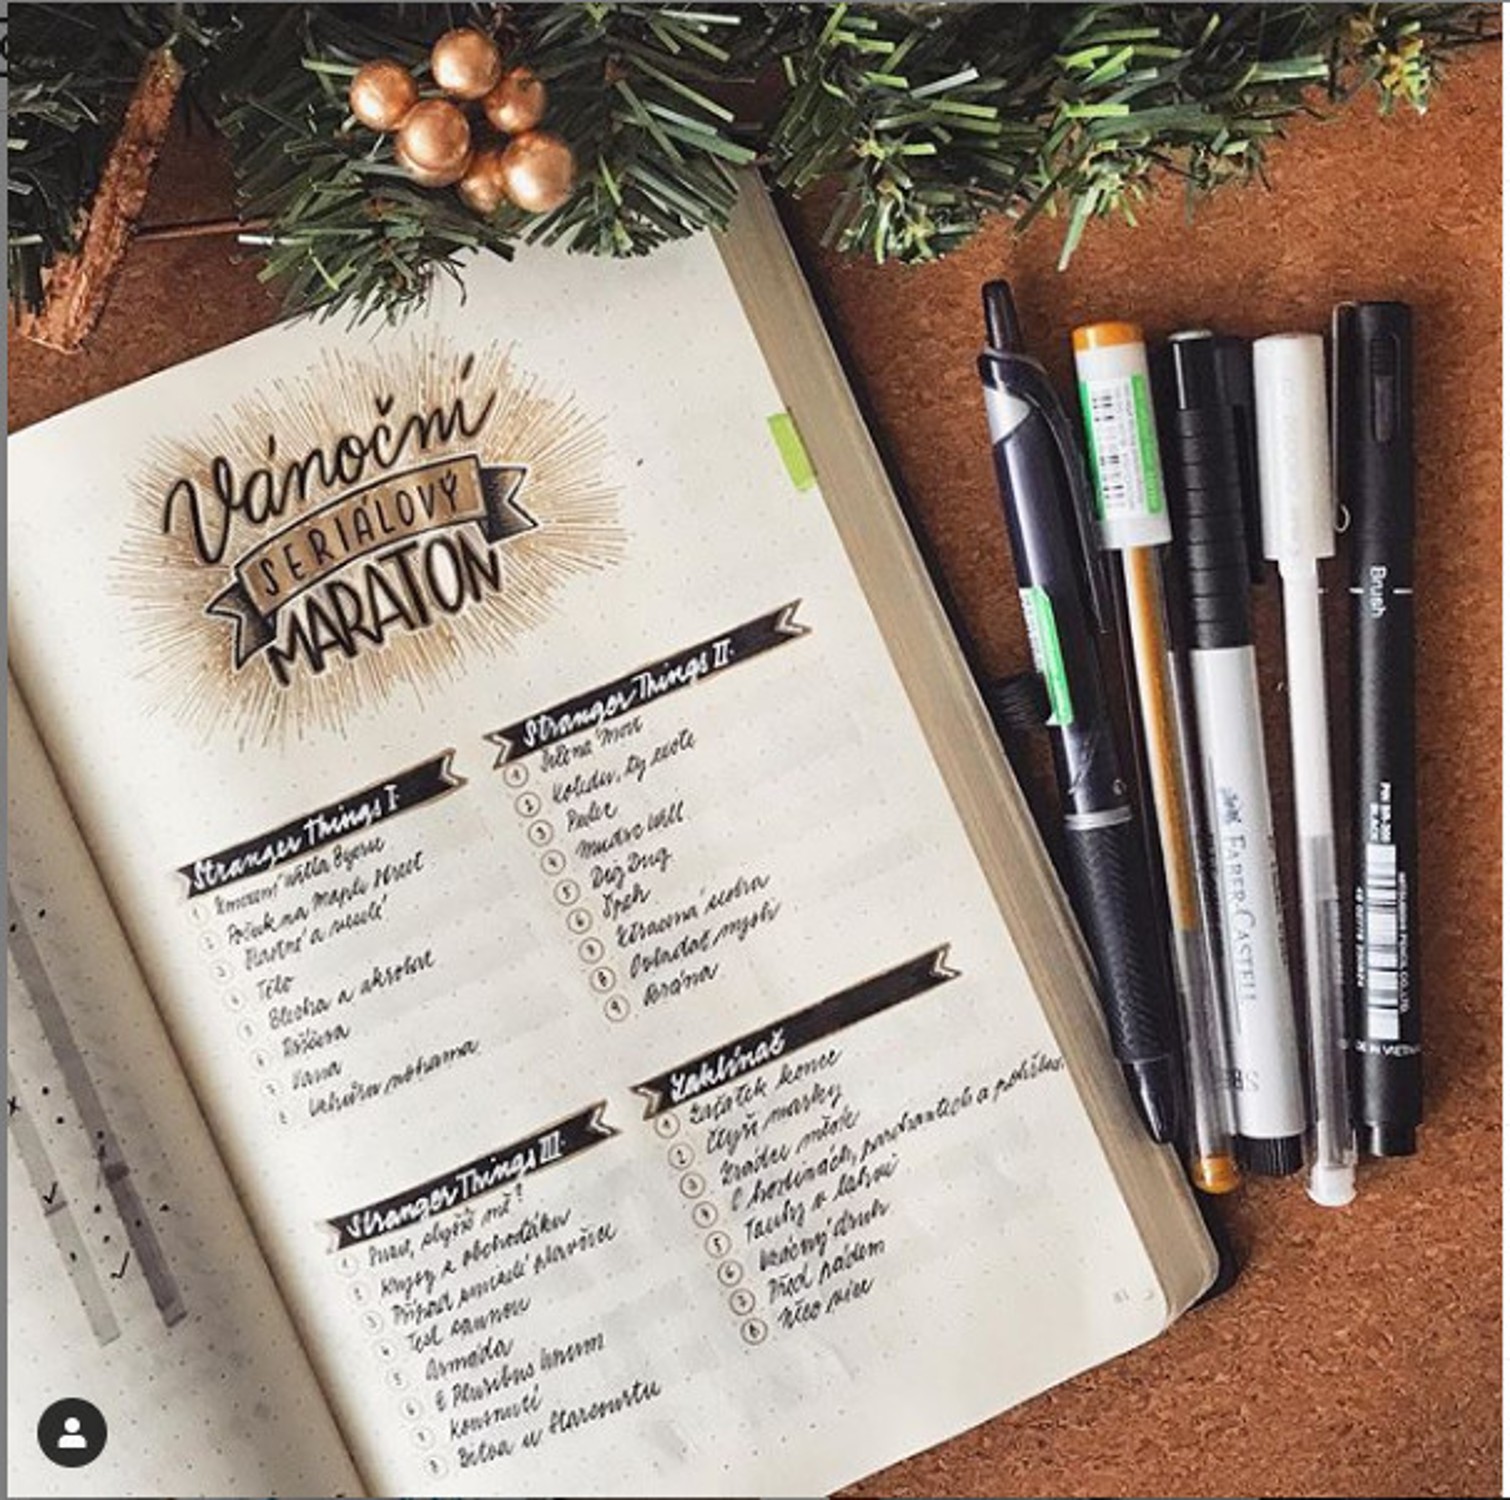 Vánoční
SERIÁLOVÝ
MARATON
Stranger Things I.
1 Zmizení Willa Byerse
2 Poťouk na Maple Street
3 Šťastné a veselé
4 Tělo
5 Blecha a akrobat
6 Příšera
7 Vana
8 Vzhůru nohama
Stranger Things II.
1 Šílená Moot
2 Koledu, ty cvote
3 Pulec
4 Mudrc Will
5 Dig Dug
6 Špeh
7 Ztracená sestra
8 Ovladač mysli
9 Brána
Stranger Things III.
1 Suzie, slyšíš mě?
2 Krysy z obchoďáku
3 Případ zmizelé plavčice
4 Test saunou
5 Armáda
6 E Pluribus Unum
7 Kousnutí
8 Bitva u Starcourtu
Zaklínač
1 Začátek konce
2 Čtyři marky
3 Zrádce měsíc
4 O hostinách, parchantech a pohřbu
5 Touhy v lahvi
6 Vzácný druh
7 Před pádem
8 Něco více
FABER-CASTELL
Brush